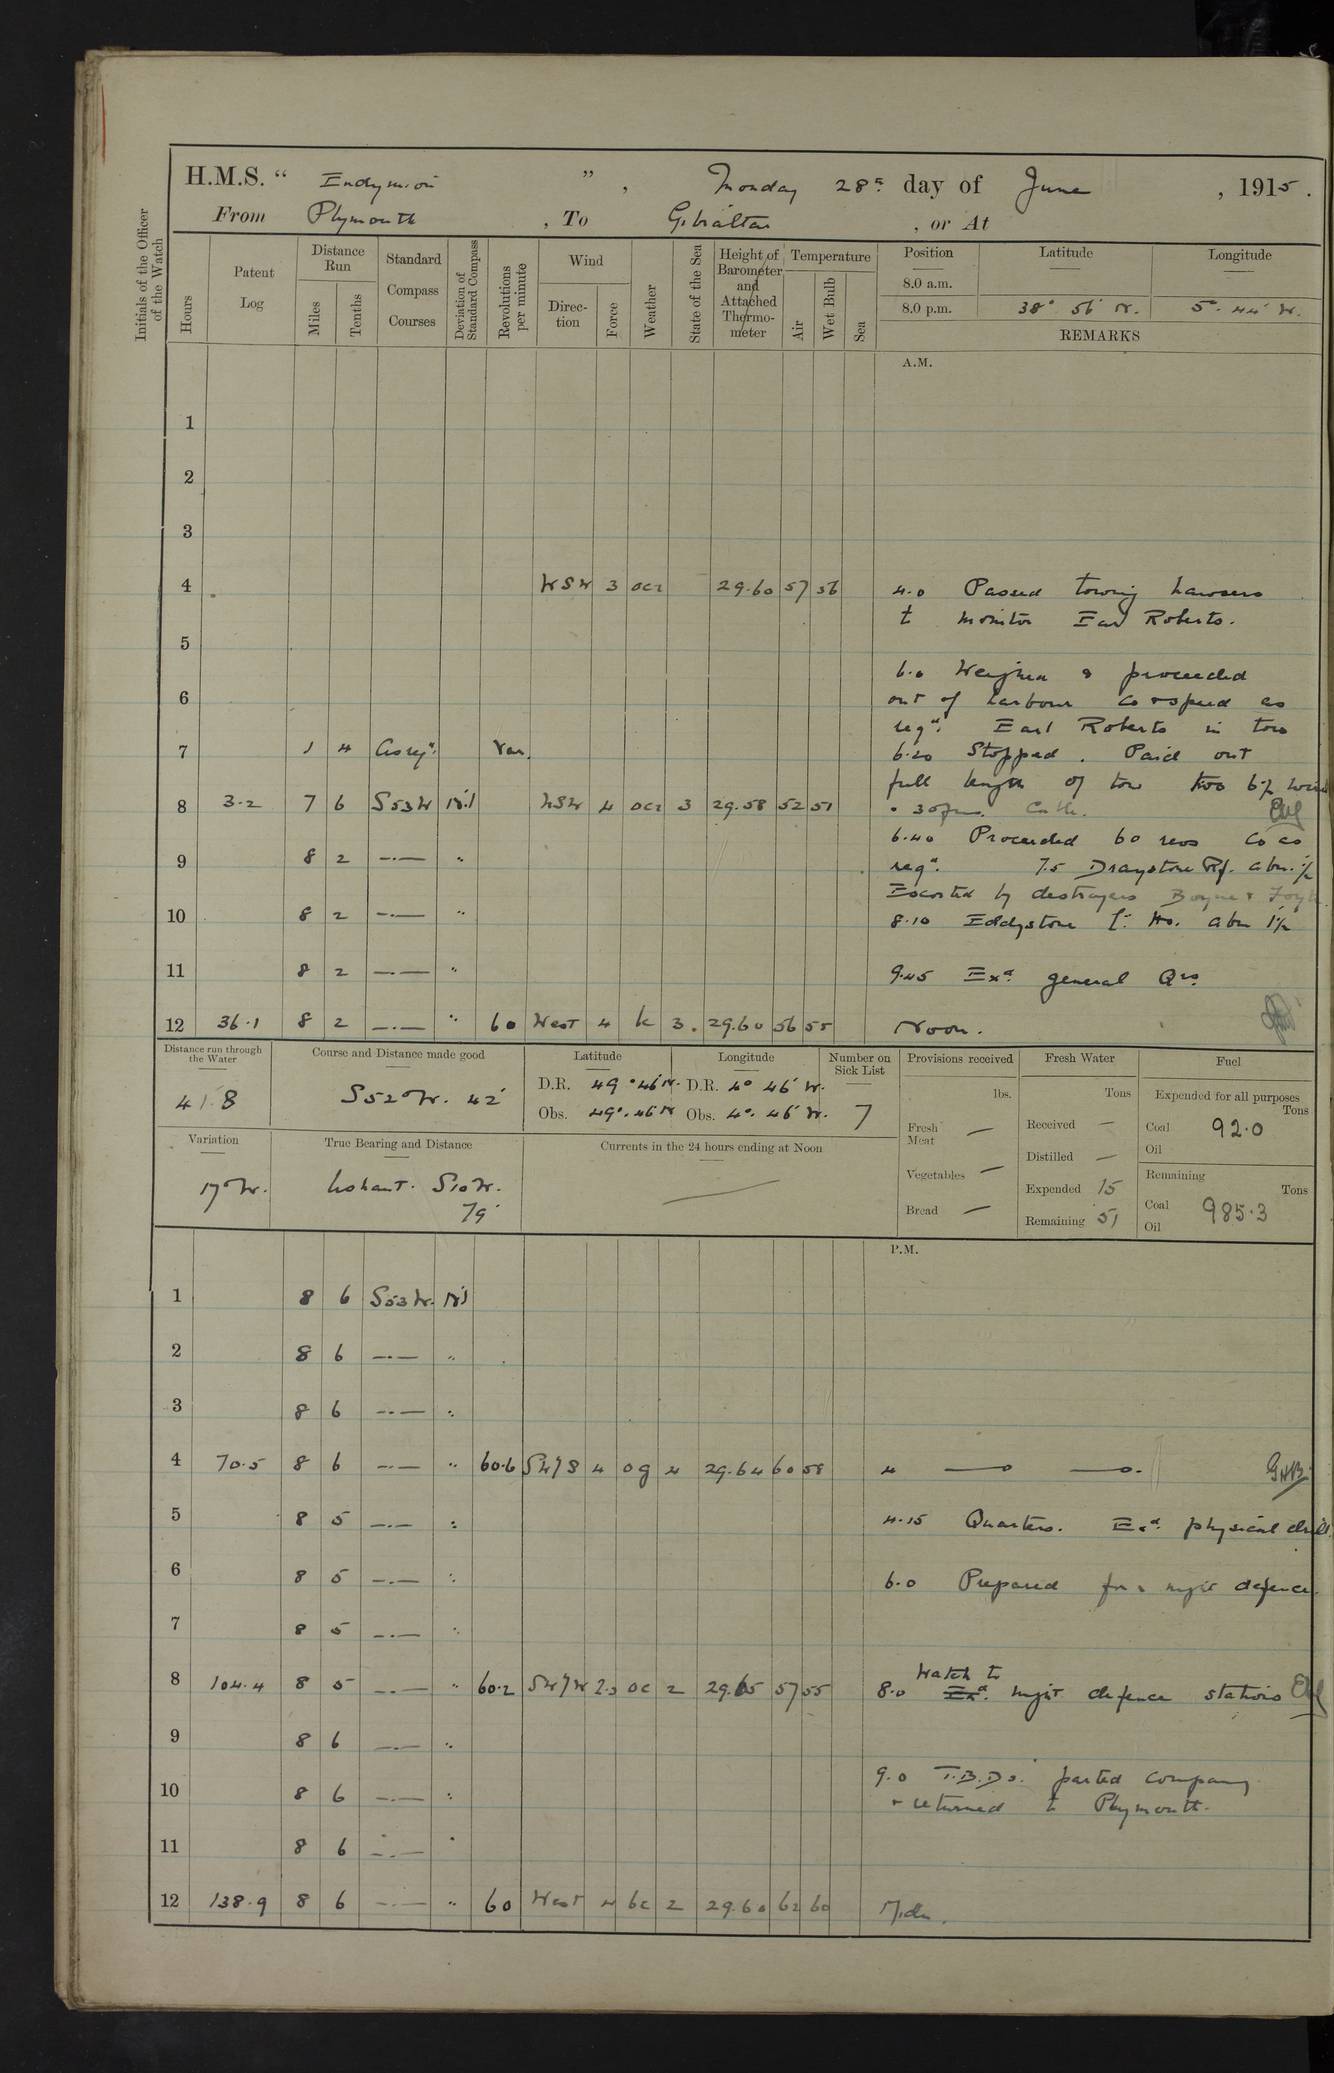 H.M.S. “ Endymion ”, Monday 28th day of June, 1915.
From Plymouth, To Gibraltar, or At
Initials of the Officer of the Watch
Hours
Patent Log
Distance Run
Miles
Tenths
Standard Compass Courses
Deviation of Standard Compass
Revolutions per minute
Wind
Direction
Force
Weather
State of the Sea
Height of Barometer and Attached Thermometer
Temperature
Air
Wet Bulb
Sea
Position Latitude Longitude
8.0 a.m.
8.0 p.m. 38° 56' N. 5°. 44' W.
REMARKS
A.M.
1
2
3
4 WSW 3 ocr 29.60 57 56 4.0 Passed towing hawsers
to monitor Earl Roberts.
5
6.0 Weighed & proceeded
6 out of harbour Co & speed as
reqd. Earl Roberts in tow
7 1 4 As reqd. Var. 6.20 Stopped. Paid out
full length of tow two 6½
8 3.2 7 6 S53W Nil WSW 4 ocr 3 29.58 52 51
6.40 Proceeded 60 revs Co as
9 8 2 —.— " reqd. 7.5 Draystone Rf. abm. ½
Escorted by destroyers Boyne &
10 8 2 —.— " 8.10 Eddystone Lt. Ho. abm 1½
11 8 2 —.— " 9.45 Exd. general Qrs.
12 36.1 8 2 —.— " 60 West 4 bc 3. 29.60 56 55 Noon.
Distance run through the Water
41.8
Course and Distance made good
S52°W. 42'
Latitude Longitude
D.R. 49°.46'N. D.R. 4° 46' W.
Obs. 49°.46'N Obs. 4°. 46' W.
Number on Sick List
7
Provisions received
lbs.
Fresh Meat —
Vegetables —
Bread —
Fresh Water
Tons
Received —
Distilled —
Expended 15
Remaining 51
Fuel
Expended for all purposes
Tons
Coal 92.0
Oil
Remaining
Tons
Coal 985.3
Oil
Variation
17°W.
True Bearing and Distance
Ushant. S10W.
79'
Currents in the 24 hours ending at Noon
P.M.
1 8 6 S53W. Nil
2 8 6 —.— "
3 8 6 —.— "
4 70.5 8 6 —.— " 60.6 SW/S 4 og 4 29.64 60 58 4 —o —o. GHB
5 8 5 —.— " 4.15 Quarters. Exd. physical drill.
6 8 5 —.— " 6.0 Prepared for night defence.
7 8 5 —.— "
Watch to
8 104.4 8 5 —.— " 60.2 SW/W 2.3 oc 2 29.65 57 55 8.0 Exd. night defence stations
9 8 6 —.— "
9.0 T.B.Ds. parted company
10 8 6 —.— " & returned to Plymouth.
11 8 6 —.— "
12 138.9 8 6 —.— " 60 West 4 bc 2 29.60 62 60 Midn.